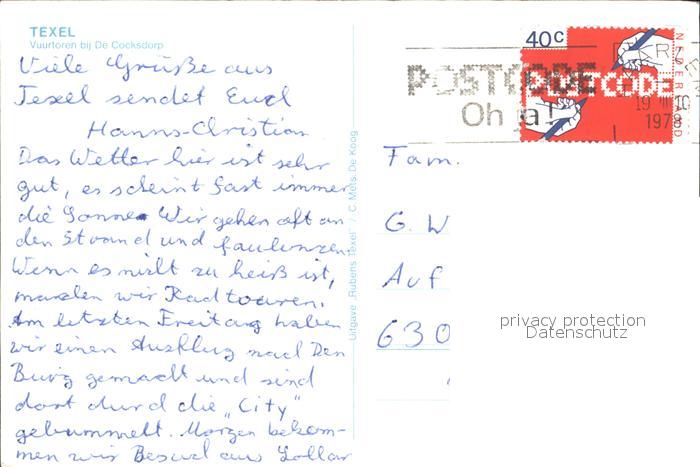 TEXEL
Vuurtoren bij De Cocksdorp
Viele Grüße aus
Texel sendet Euch
Hanns-Christian
Das Wetter hier ist sehr
gut, es scheint fast immer
die Sonne. Wir gehen oft an
den Strand und faulenzen.
Wenn es nicht zu heiß ist,
machen wir Radtouren.
Am letzten Freitag haben
wir einen Ausflug nach Den
Burg gemacht und sind
dort durch die „City"
gebummelt. Morgen bekom-
men wir Besuch aus Lollar
Uitgave „Rubens Texel" / C. Mets. De Koog
40c
NEDERLAND
POSTCODE
POSTCODE
Oh ja!
19
1978
Fam.
G. W
Auf
630
privacy protection
Datenschutz